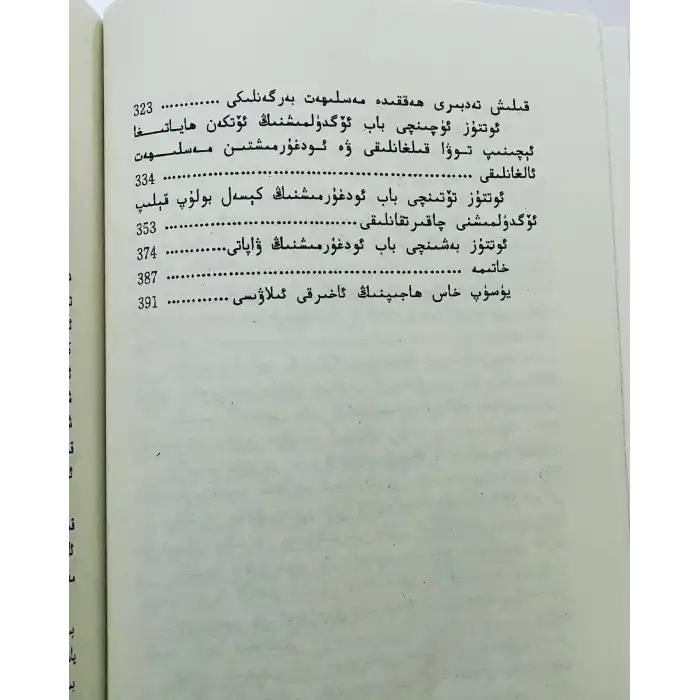 قىلىش تەدبىرى ھەققىدە مەسلىھەت بەرگەنلىكى ............ 323
ئوتتۇز ئۈچىنچى باب ئۆگدۈلمىشنىڭ ئۆتكەن ھاياتىغا
ئېچىنىپ توۋا قىلغانلىقى ۋە ئودغۇرمىشتىن مەسلىھەت
ئالغانلىقى ...................................................... 334
ئوتتۇز تۆتىنچى باب ئودغۇرمىشنىڭ كېسەل بولۇپ قېلىپ
ئۆگدۈلمىشنى چاقىرتقانلىقى .................................. 353
ئوتتۇز بەشىنچى باب ئودغۇرمىشنىڭ ۋاپاتى ............ 374
خاتىمە ...................................................... 387
يۈسۈپ خاس ھاجىپنىڭ ئاخىرقى ئىلاۋىسى ............ 391